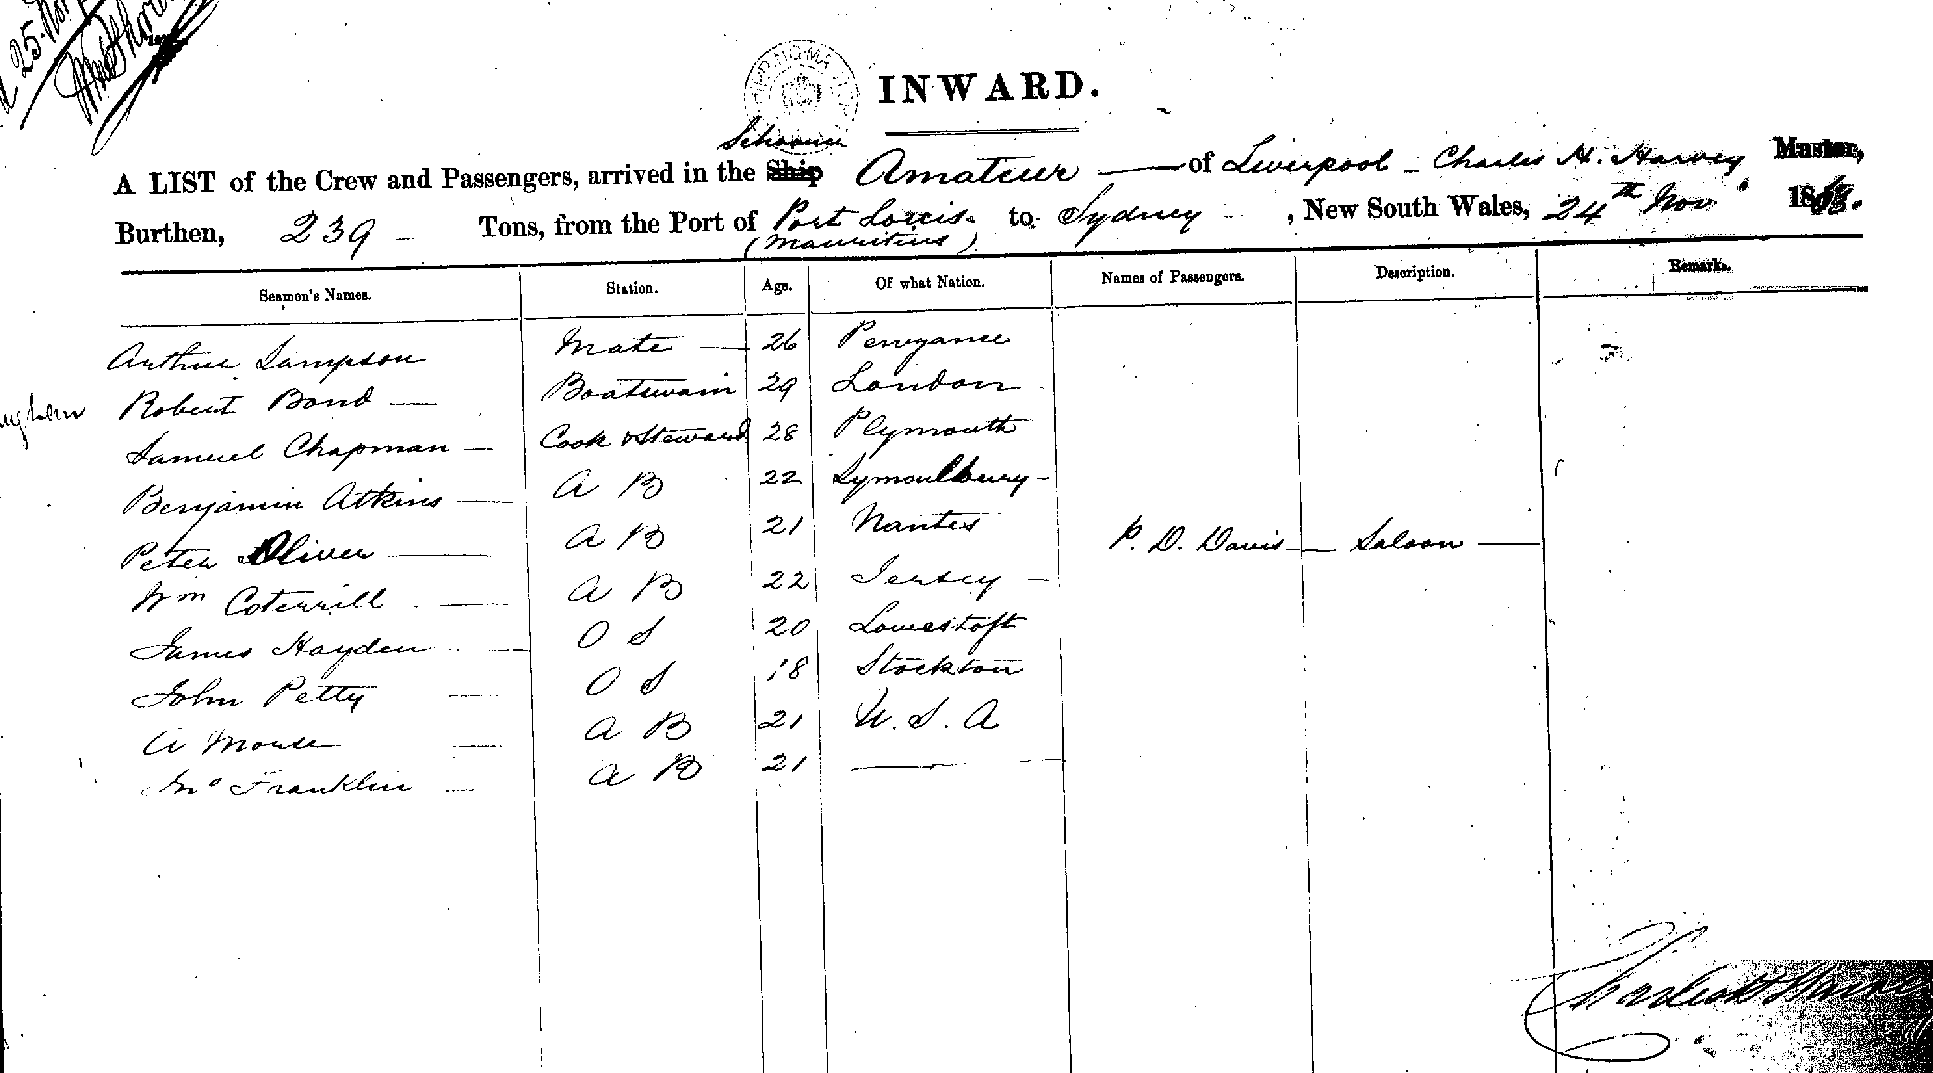 25 Nov
INWARD.
Schooner
A LIST of the Crew and Passengers, arrived in the Ship Amateur of Liverpool - Charles H. Harvey Master,
Burthen, 239 - Tons, from the Port of Port Louis to Sydney, New South Wales, 24th Nov 18
(Mauritius)
Seamen's Names. Station. Age. Of what Nation. Names of Passengers. Description. Remarks.
Arthur Sampson Mate 26 Penzance
Robert Bond Boatswain 29 London
Samuel Chapman Cook & Steward 28 Plymouth
Benjamin Atkins A B 22
Peter Oliver A B 21 Nantes P. D. Davis Saloon
Wm Coterrill A B 22 Jersey
James Hayden O S 20 Lowestoft
John Petty O S 18 Stockton
A B 21 U. S. A
Franklin A B 21